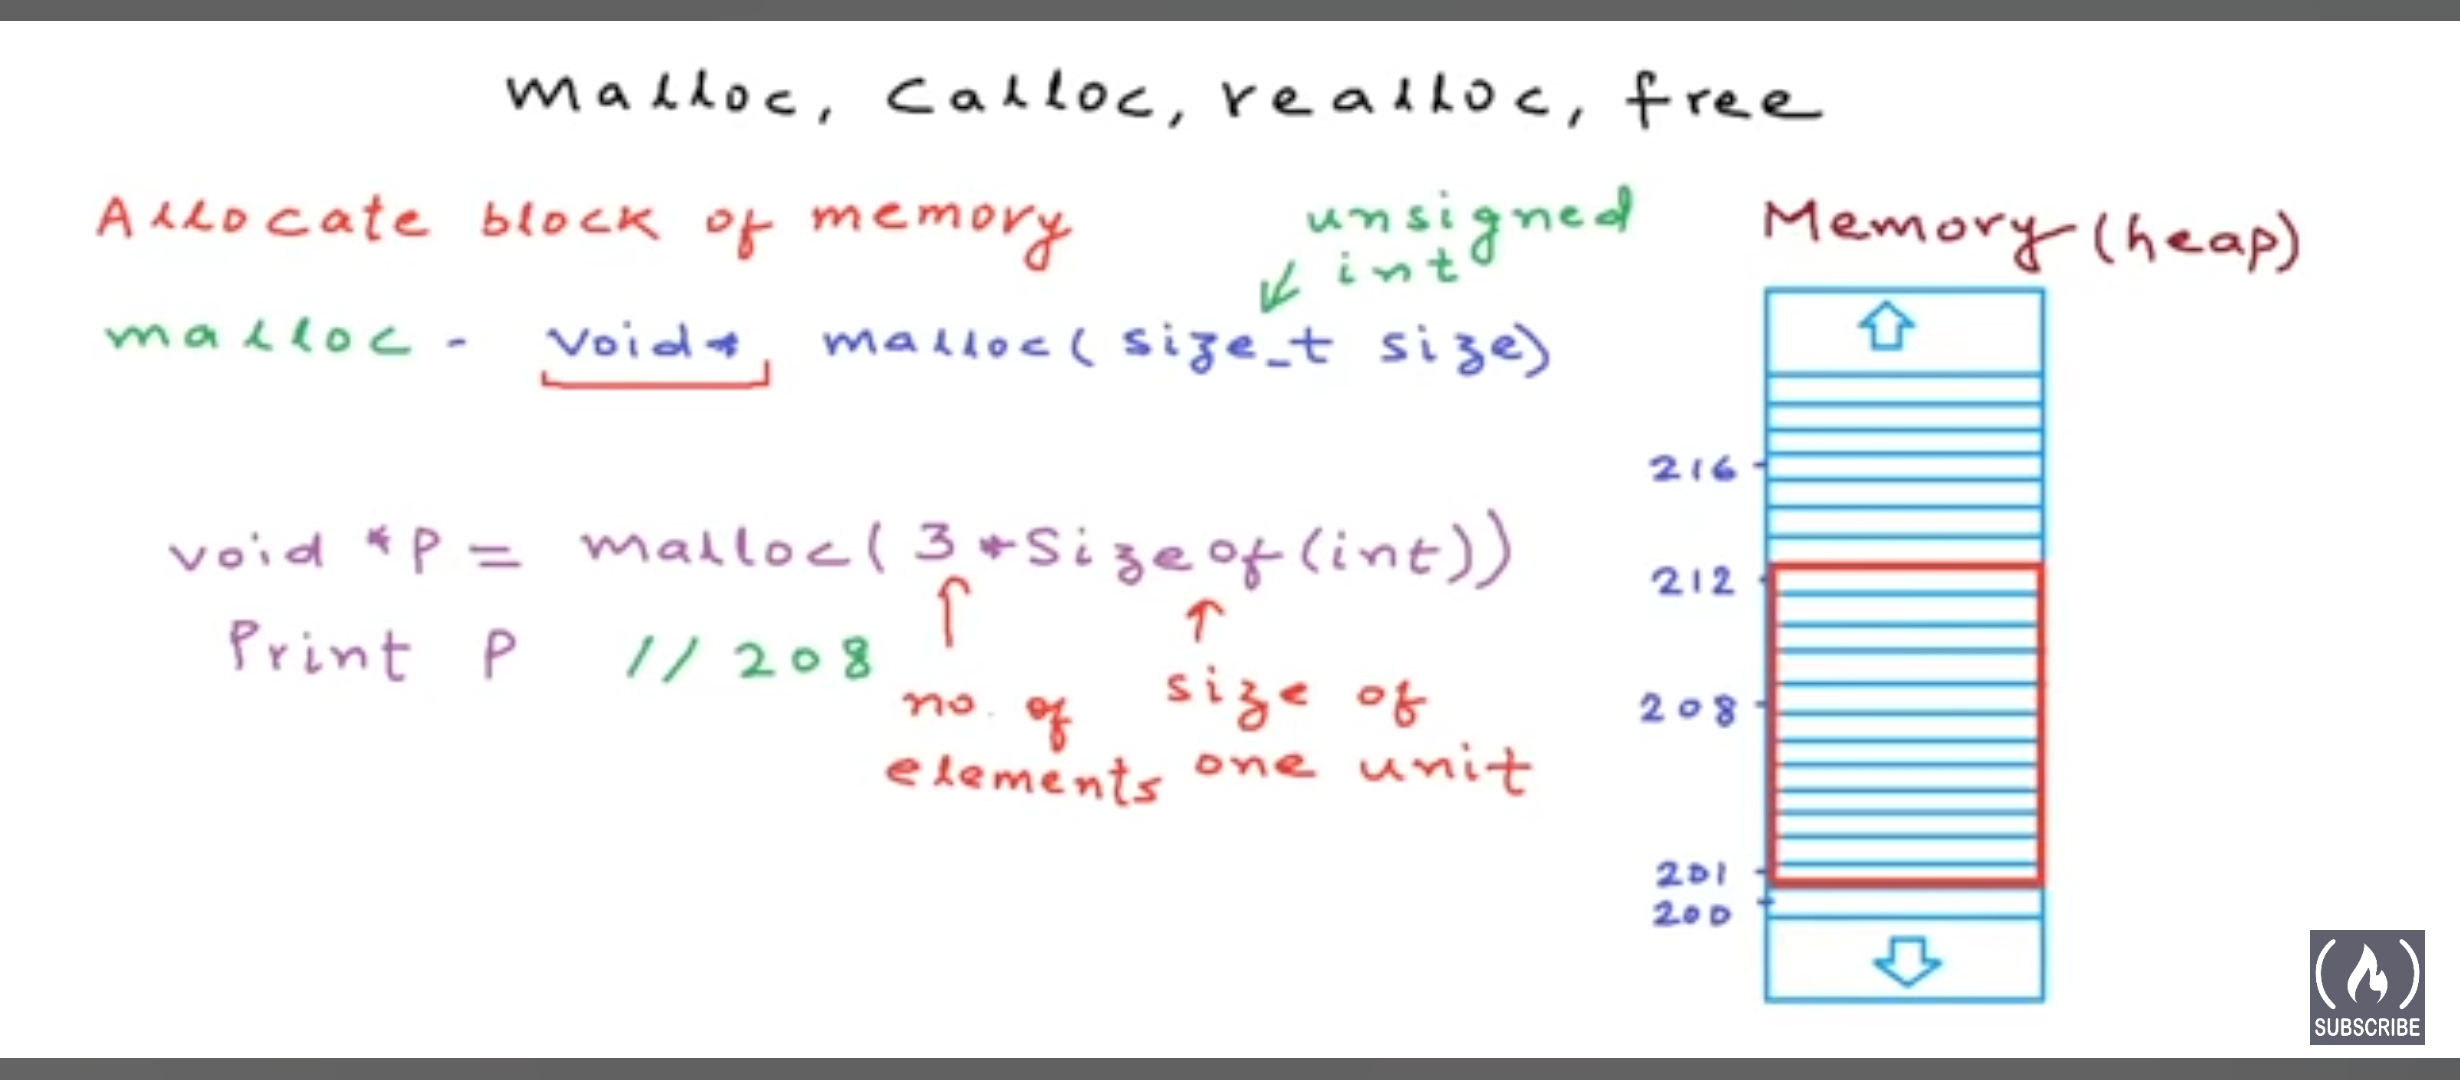 malloc, calloc, realloc, free
Allocate block of memory
unsigned
int
Memory (heap)
malloc - void* malloc(size_t size)
216
void *P = malloc(3*Sizeof(int))
212
Print P //208
208
no. of
elements
size of
one unit
201
200
SUBSCRIBE